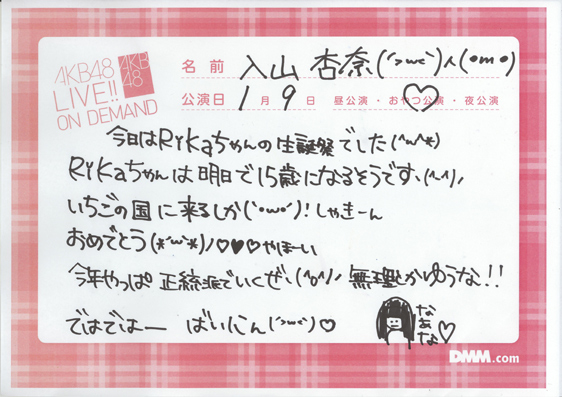 AKB48
LIVE!!
ON DEMAND
AKB
48
名前 入山 杏奈(´>ω<`)人(•m•)
公演日 1月9日 昼公演・おやつ公演・夜公演
今日はRiKaちゃんの生誕祭でした(^ω^*)
RiKaちゃんは明日で15歳になるそうです、(^-^)ノ
いちごの国に来るしか(`・ω・´)!しゃきーん
おめでとう(*´ω`*)ノ♡♥♡やほーい
今年やっぱ正統派でいくぜ、(^o^)ノ 無理とかゆうな!!
ではではー ばいにん(´>ω<`)♡
なぁな♡
DMM.com